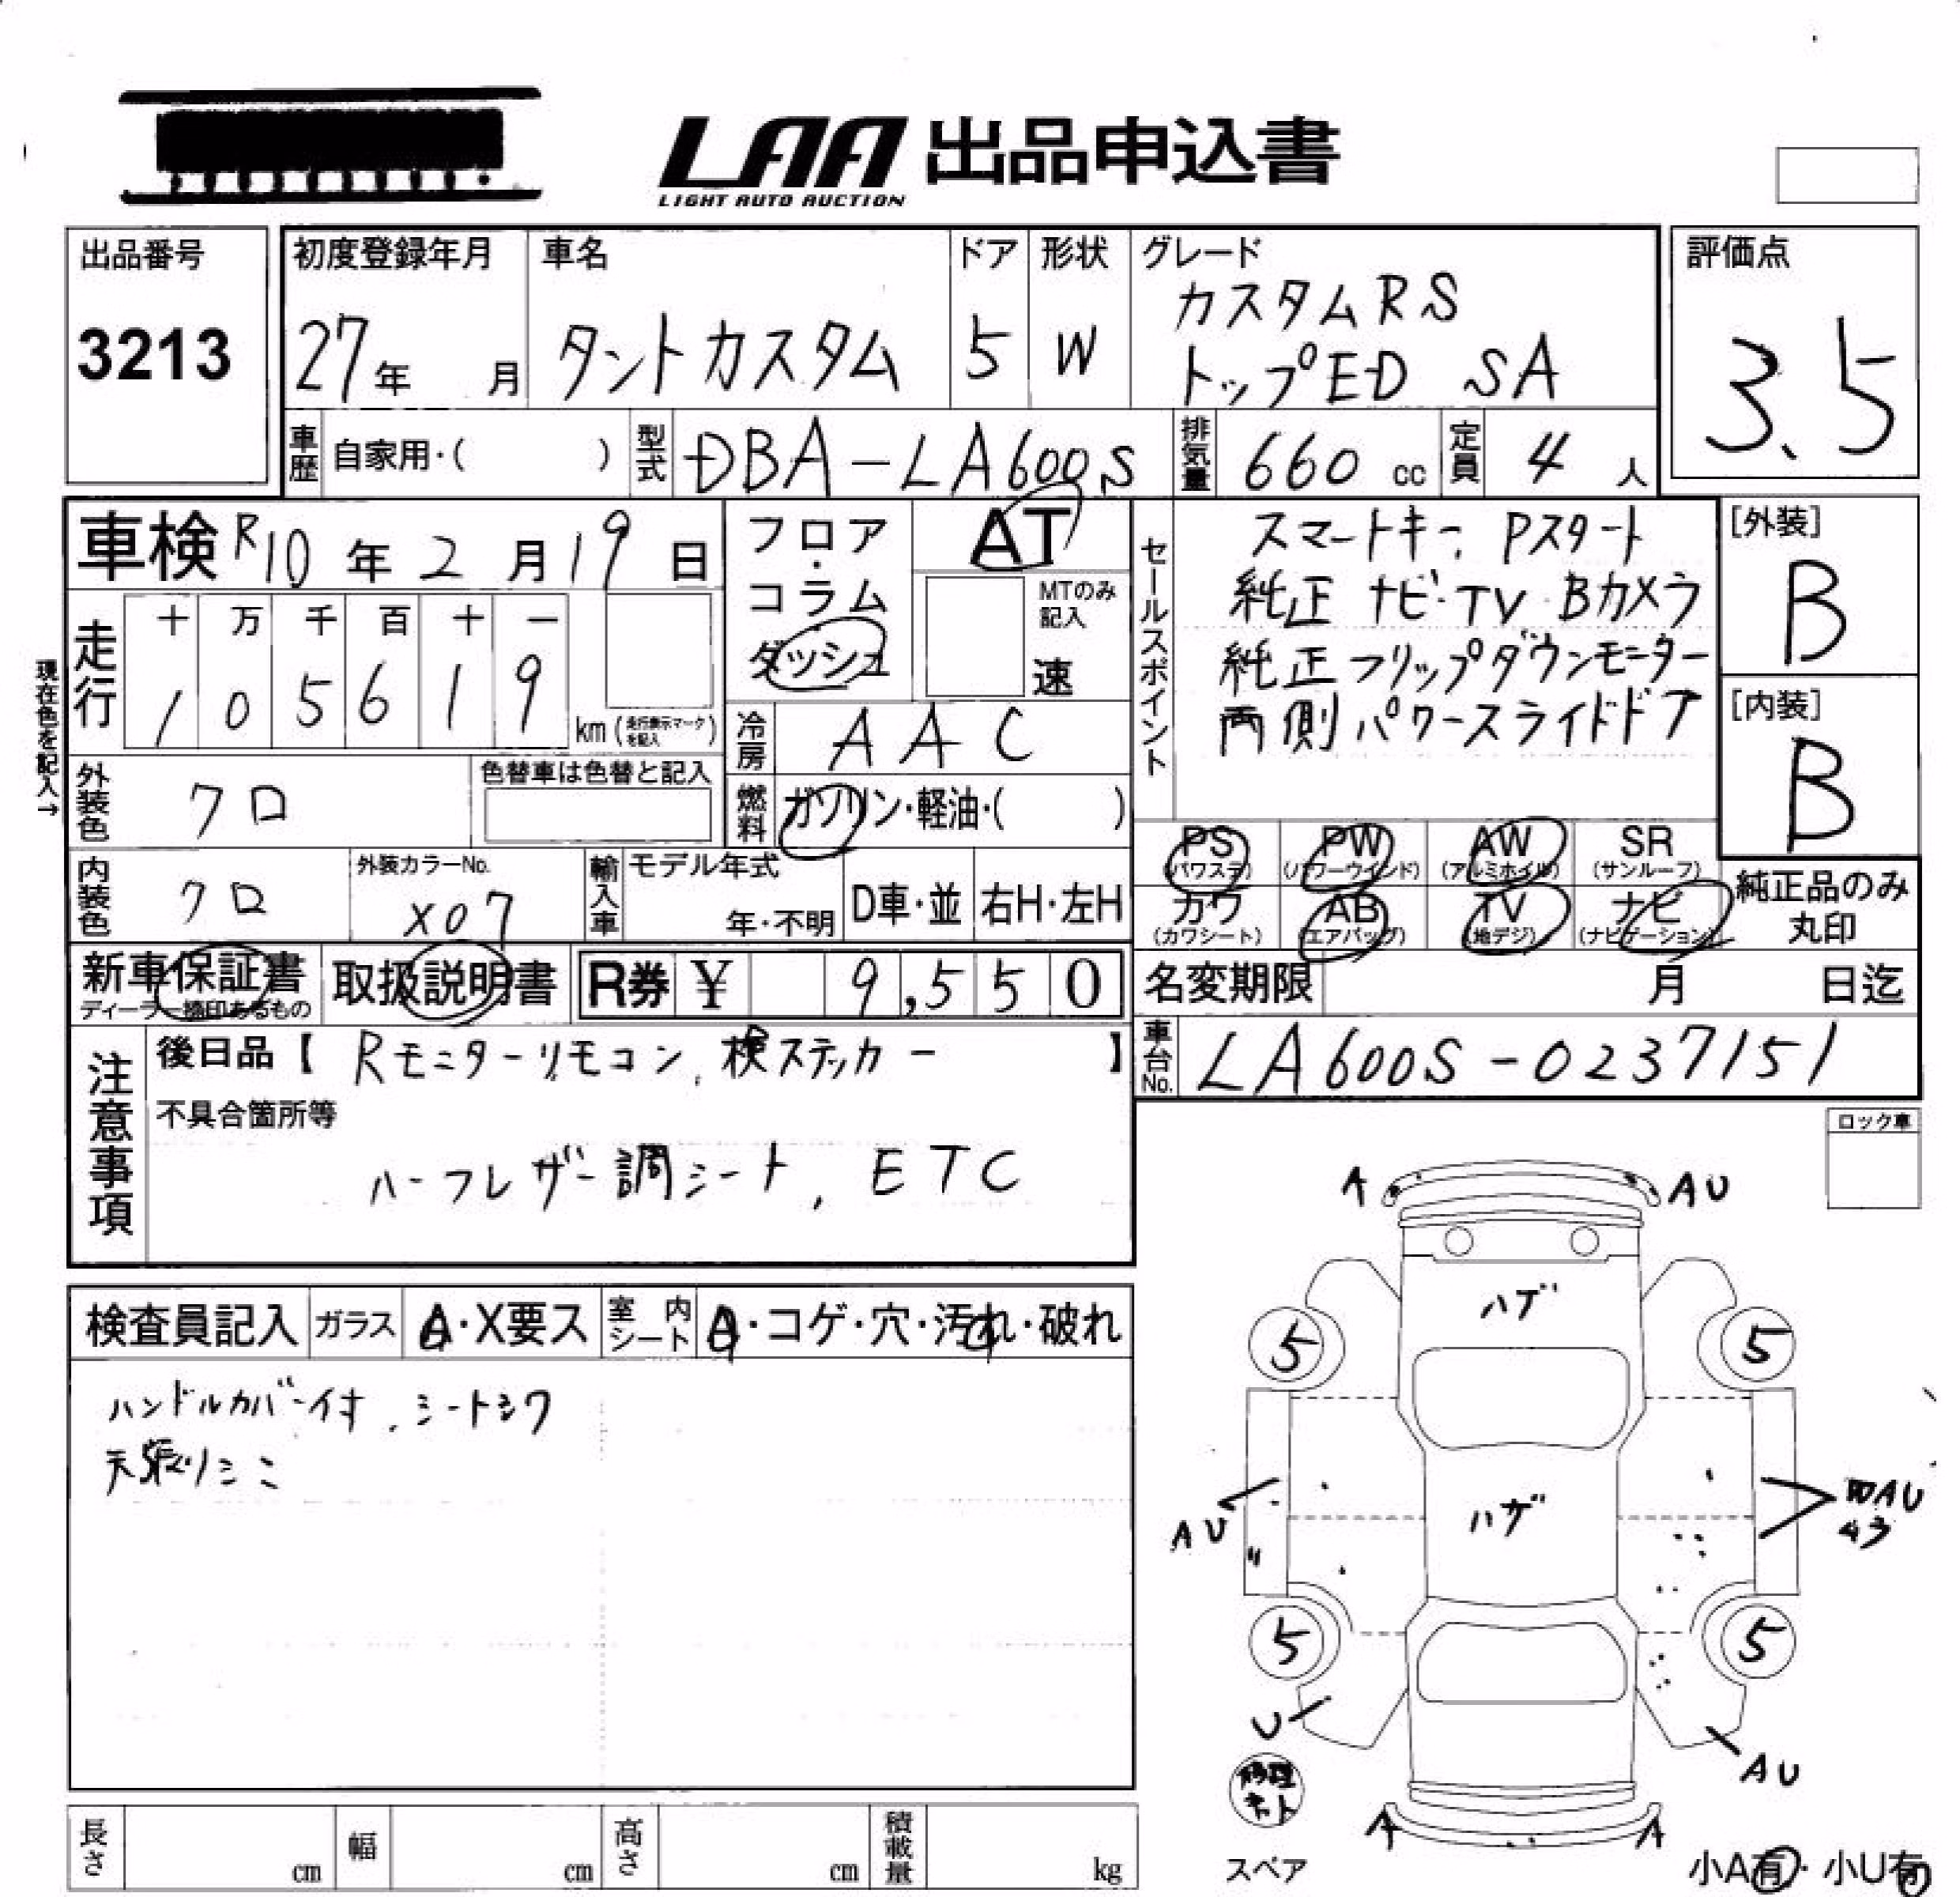 LAA 出品申込書
LIGHT AUTO AUCTION
出品番号
3213
初度登録年月
27年 月
車名
タントカスタム
ドア
5
形状
W
グレード
カスタムRS
トップED SA
評価点
3.5
車歴 自家用・( )
型式 DBA-LA600S
排気量 660 cc
定員 4 人
車検 R10年2月19日
現在色を記入→
走行
十 万 千 百 十 一
1 0 5 6 1 9
km (走行表示マークを記入)
フロア・コラム
ダッシュ
AT
MTのみ記入
速
冷房 AAC
燃料 ガソリン・軽油・( )
セールスポイント
スマートキー, Pスタート
純正 ナビ・TV・Bカメラ
純正フリップダウンモニター
両側パワースライドドア
[外装]
B
[内装]
B
外装色 クロ
色替車は色替と記入
内装色 クロ
外装カラーNo.
X07
輸入車
モデル年式
年・不明
D車・並
右H・左H
PS (パワステ)
PW (パワーウインド)
AW (アルミホイル)
SR (サンルーフ)
カワ (カワシート)
AB (エアバッグ)
TV (地デジ)
ナビ (ナビゲーション)
純正品のみ
丸印
新車保証書
ディーラー捺印あるもの
取扱説明書
R券 ¥ 9,550
名変期限 月 日迄
車台No. LA600S-0237151
注意事項
後日品【 Rモニターリモコン, 検ステッカー 】
不具合箇所等
ハーフレザー調シート, ETC
ロック車
検査員記入
ガラス A・X要ス
室内シート A・コゲ・穴・汚れ・破れ
ハンドルカバー付, シートシワ
天張りシミ
A
AU
ハゲ
5
5
ハゲ
AU
AU
43
5
5
U
AU
修理キット
スペア
A
A
小A有・小U有
長さ cm
幅 cm
高さ cm
積載量 kg